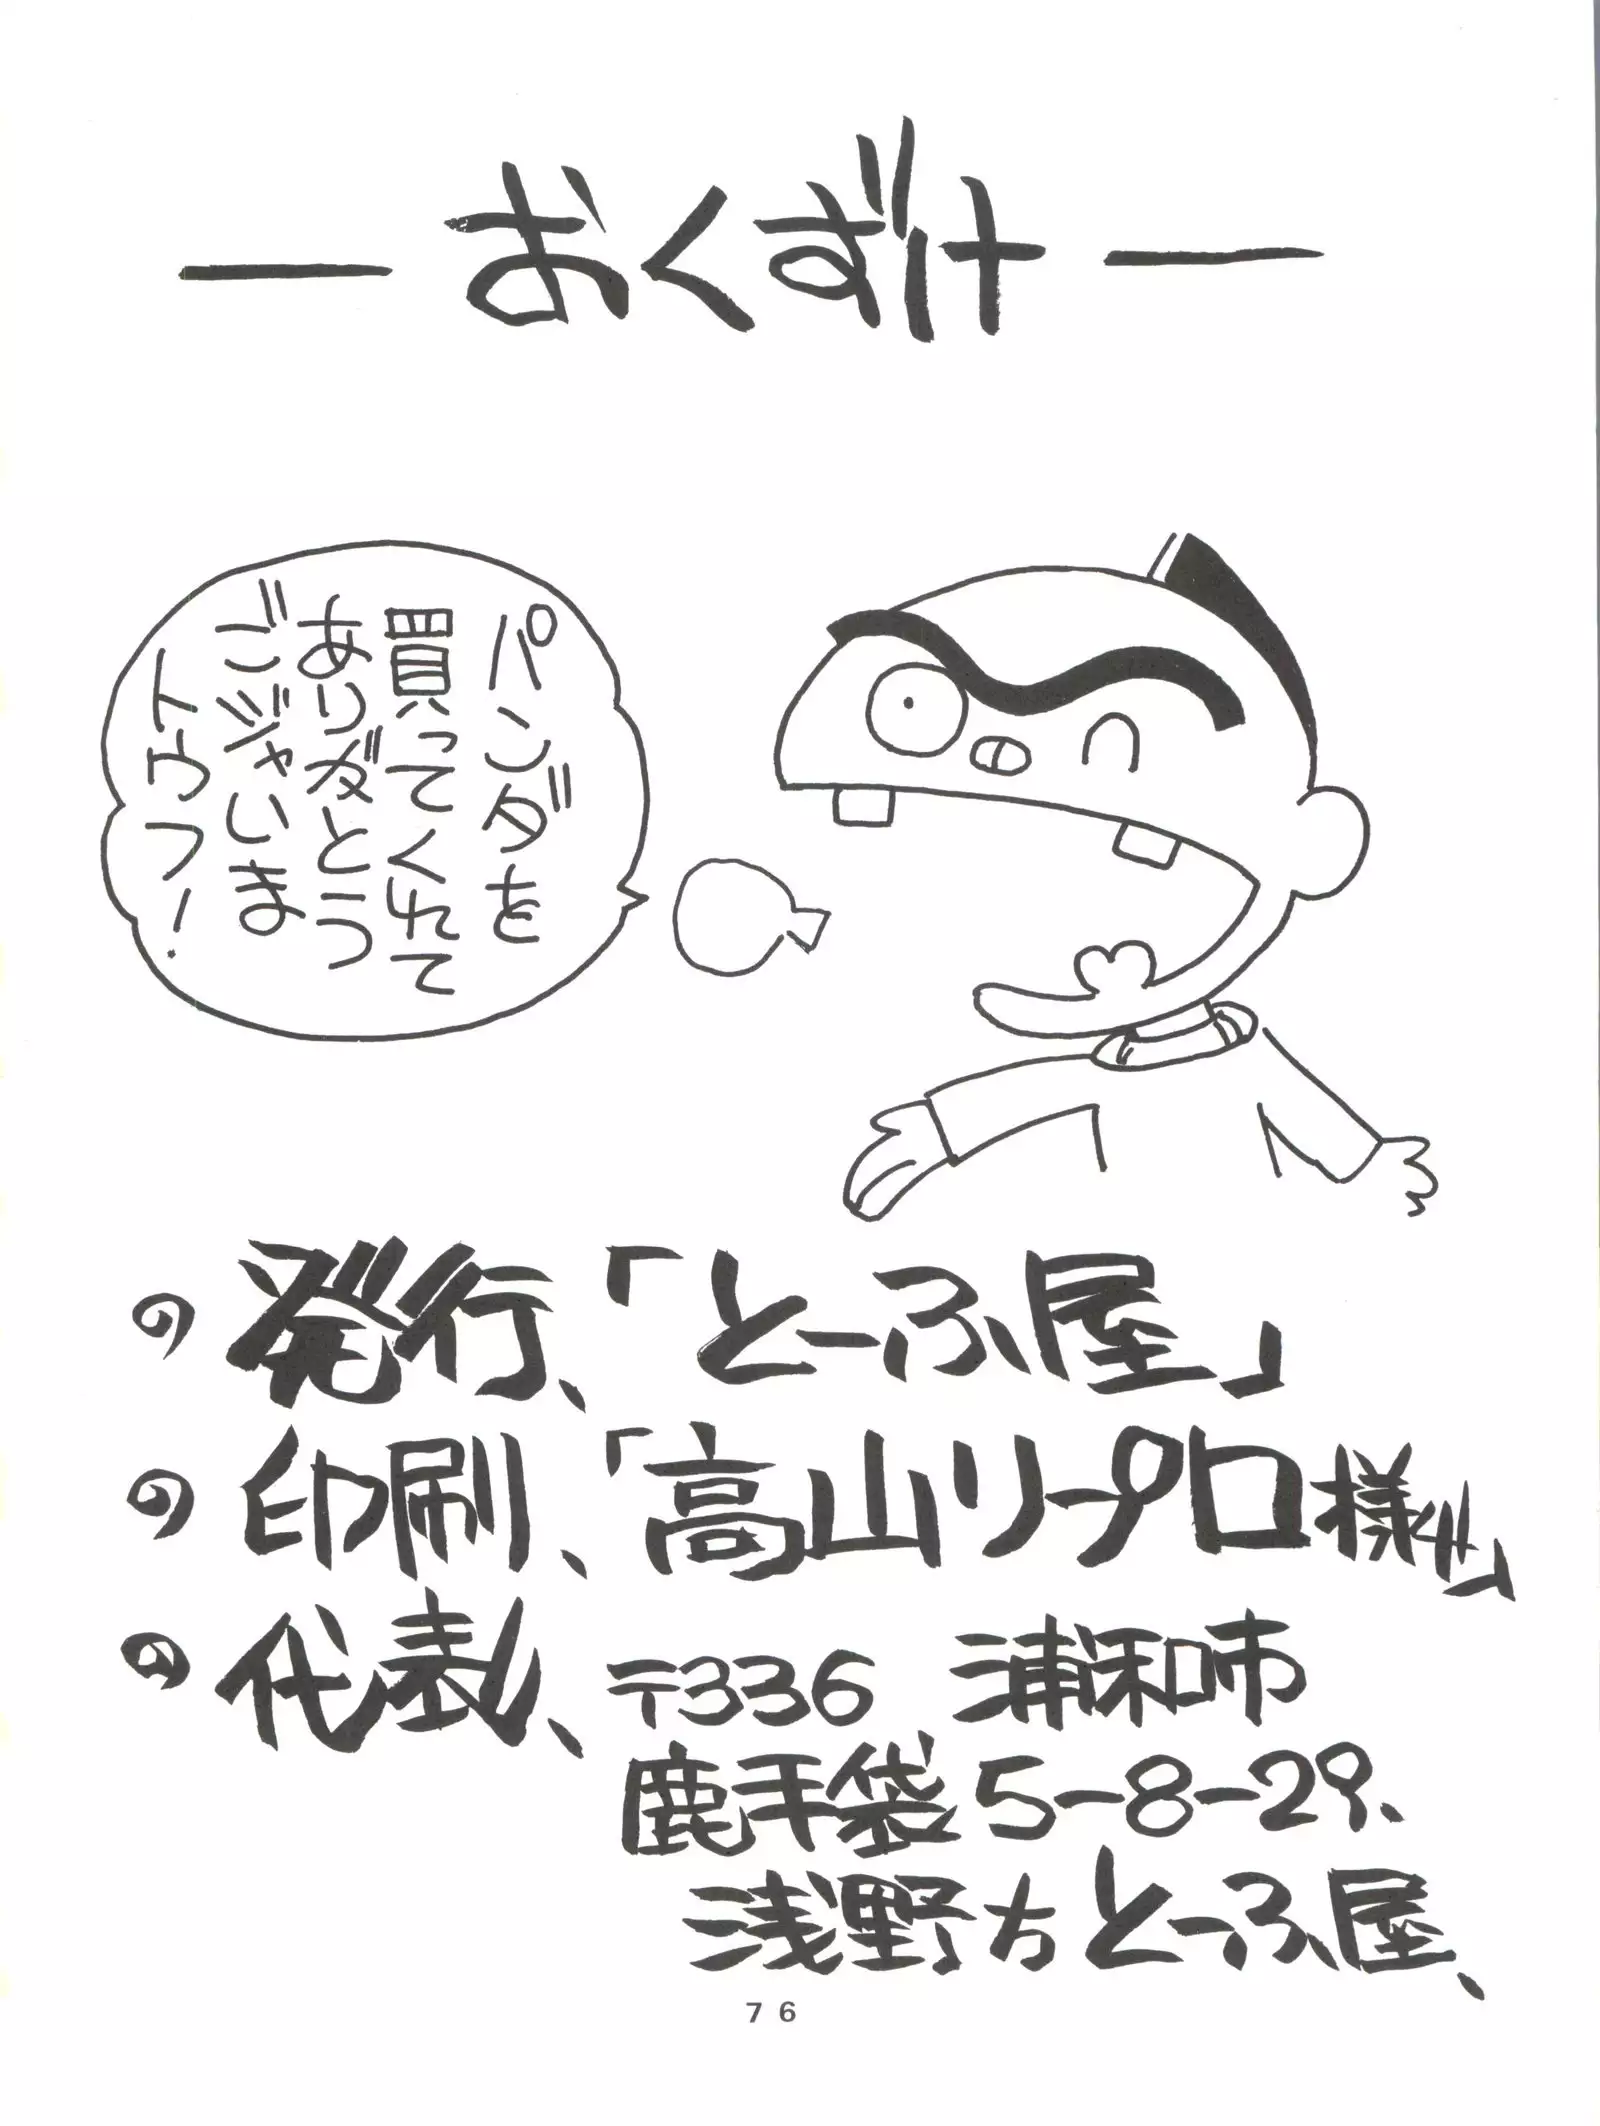 ― おくずけ ―
パンダを
買ってくれて
ありがとう
ごジャいま
トウフ!
の 発行、「とーふ屋」
の 印刷、「高山リープロ様」
の 代表、〒336 浦和市
鹿手袋5-8-29、
浅野方とーふ屋、
76